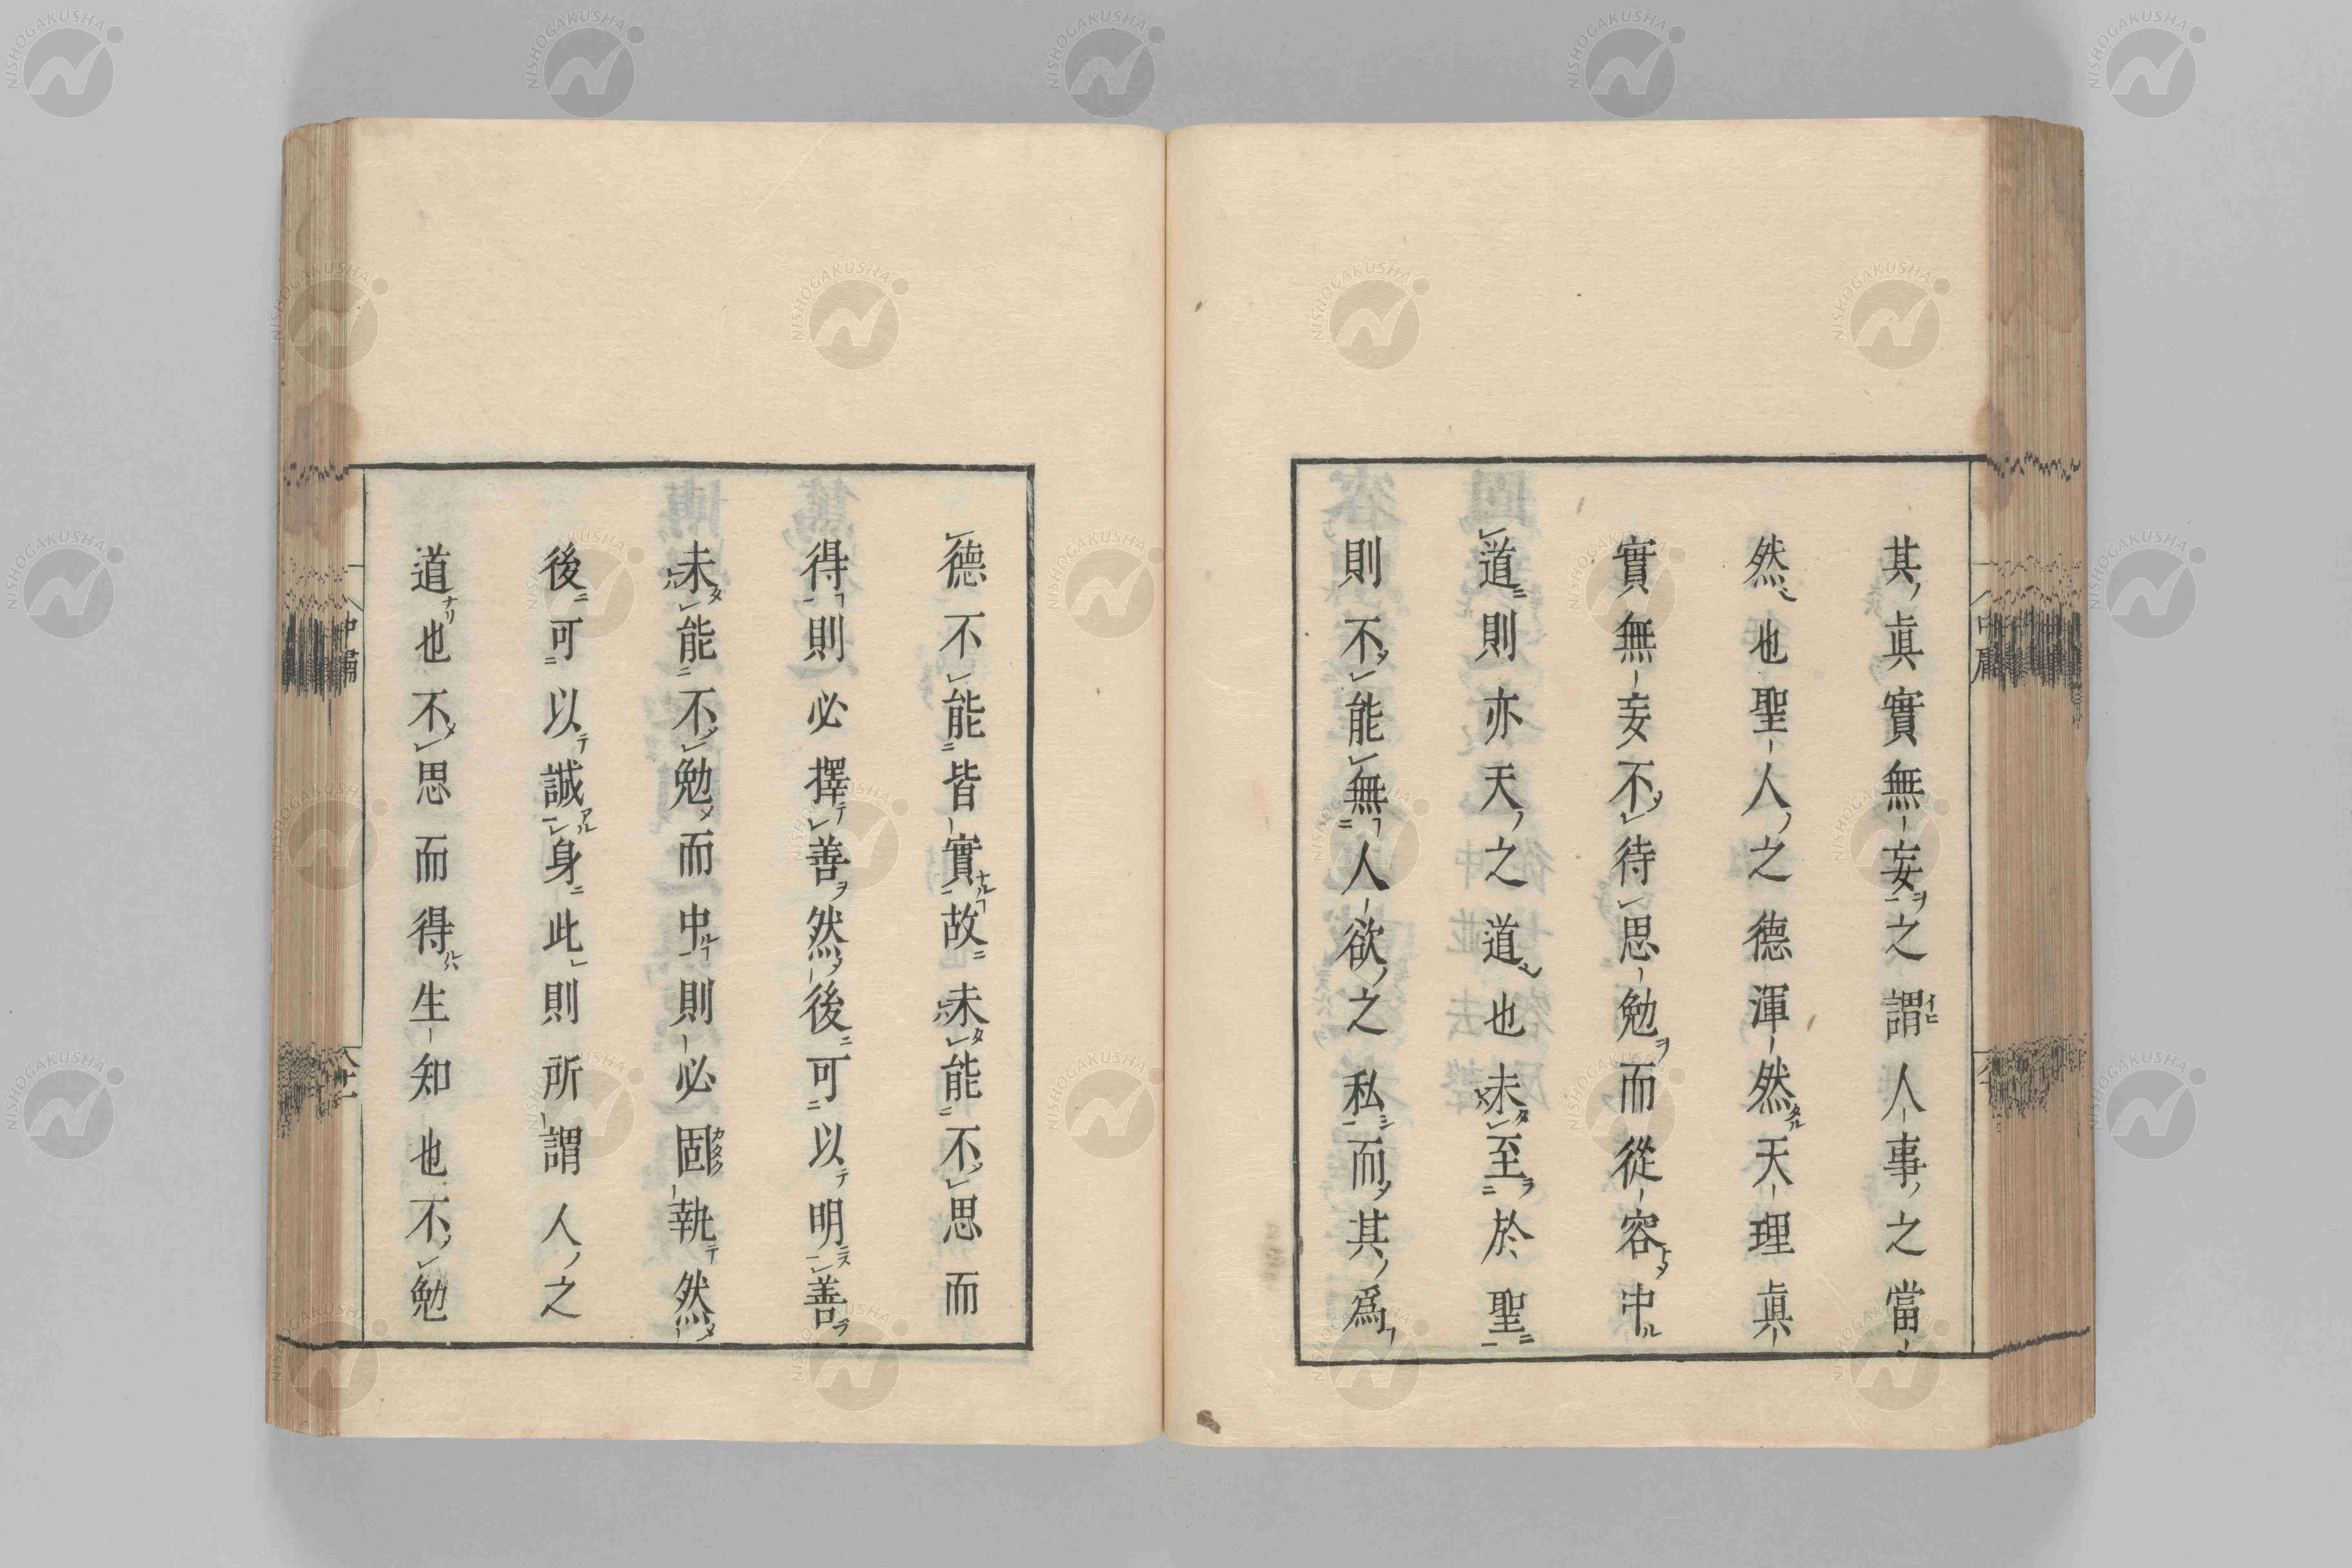 其真實無妄之謂人事之當
然也聖人之德渾然天理真
實無妄不待思勉而從容中
道則亦天之道也未至於聖
則不能無人欲之私而其爲
德不能皆實故未能不思而
得則必擇善然後可以明善
未能不勉而中則必固執然
後可以誠身此則所謂人之
道也不思而得生知也不勉
中庸